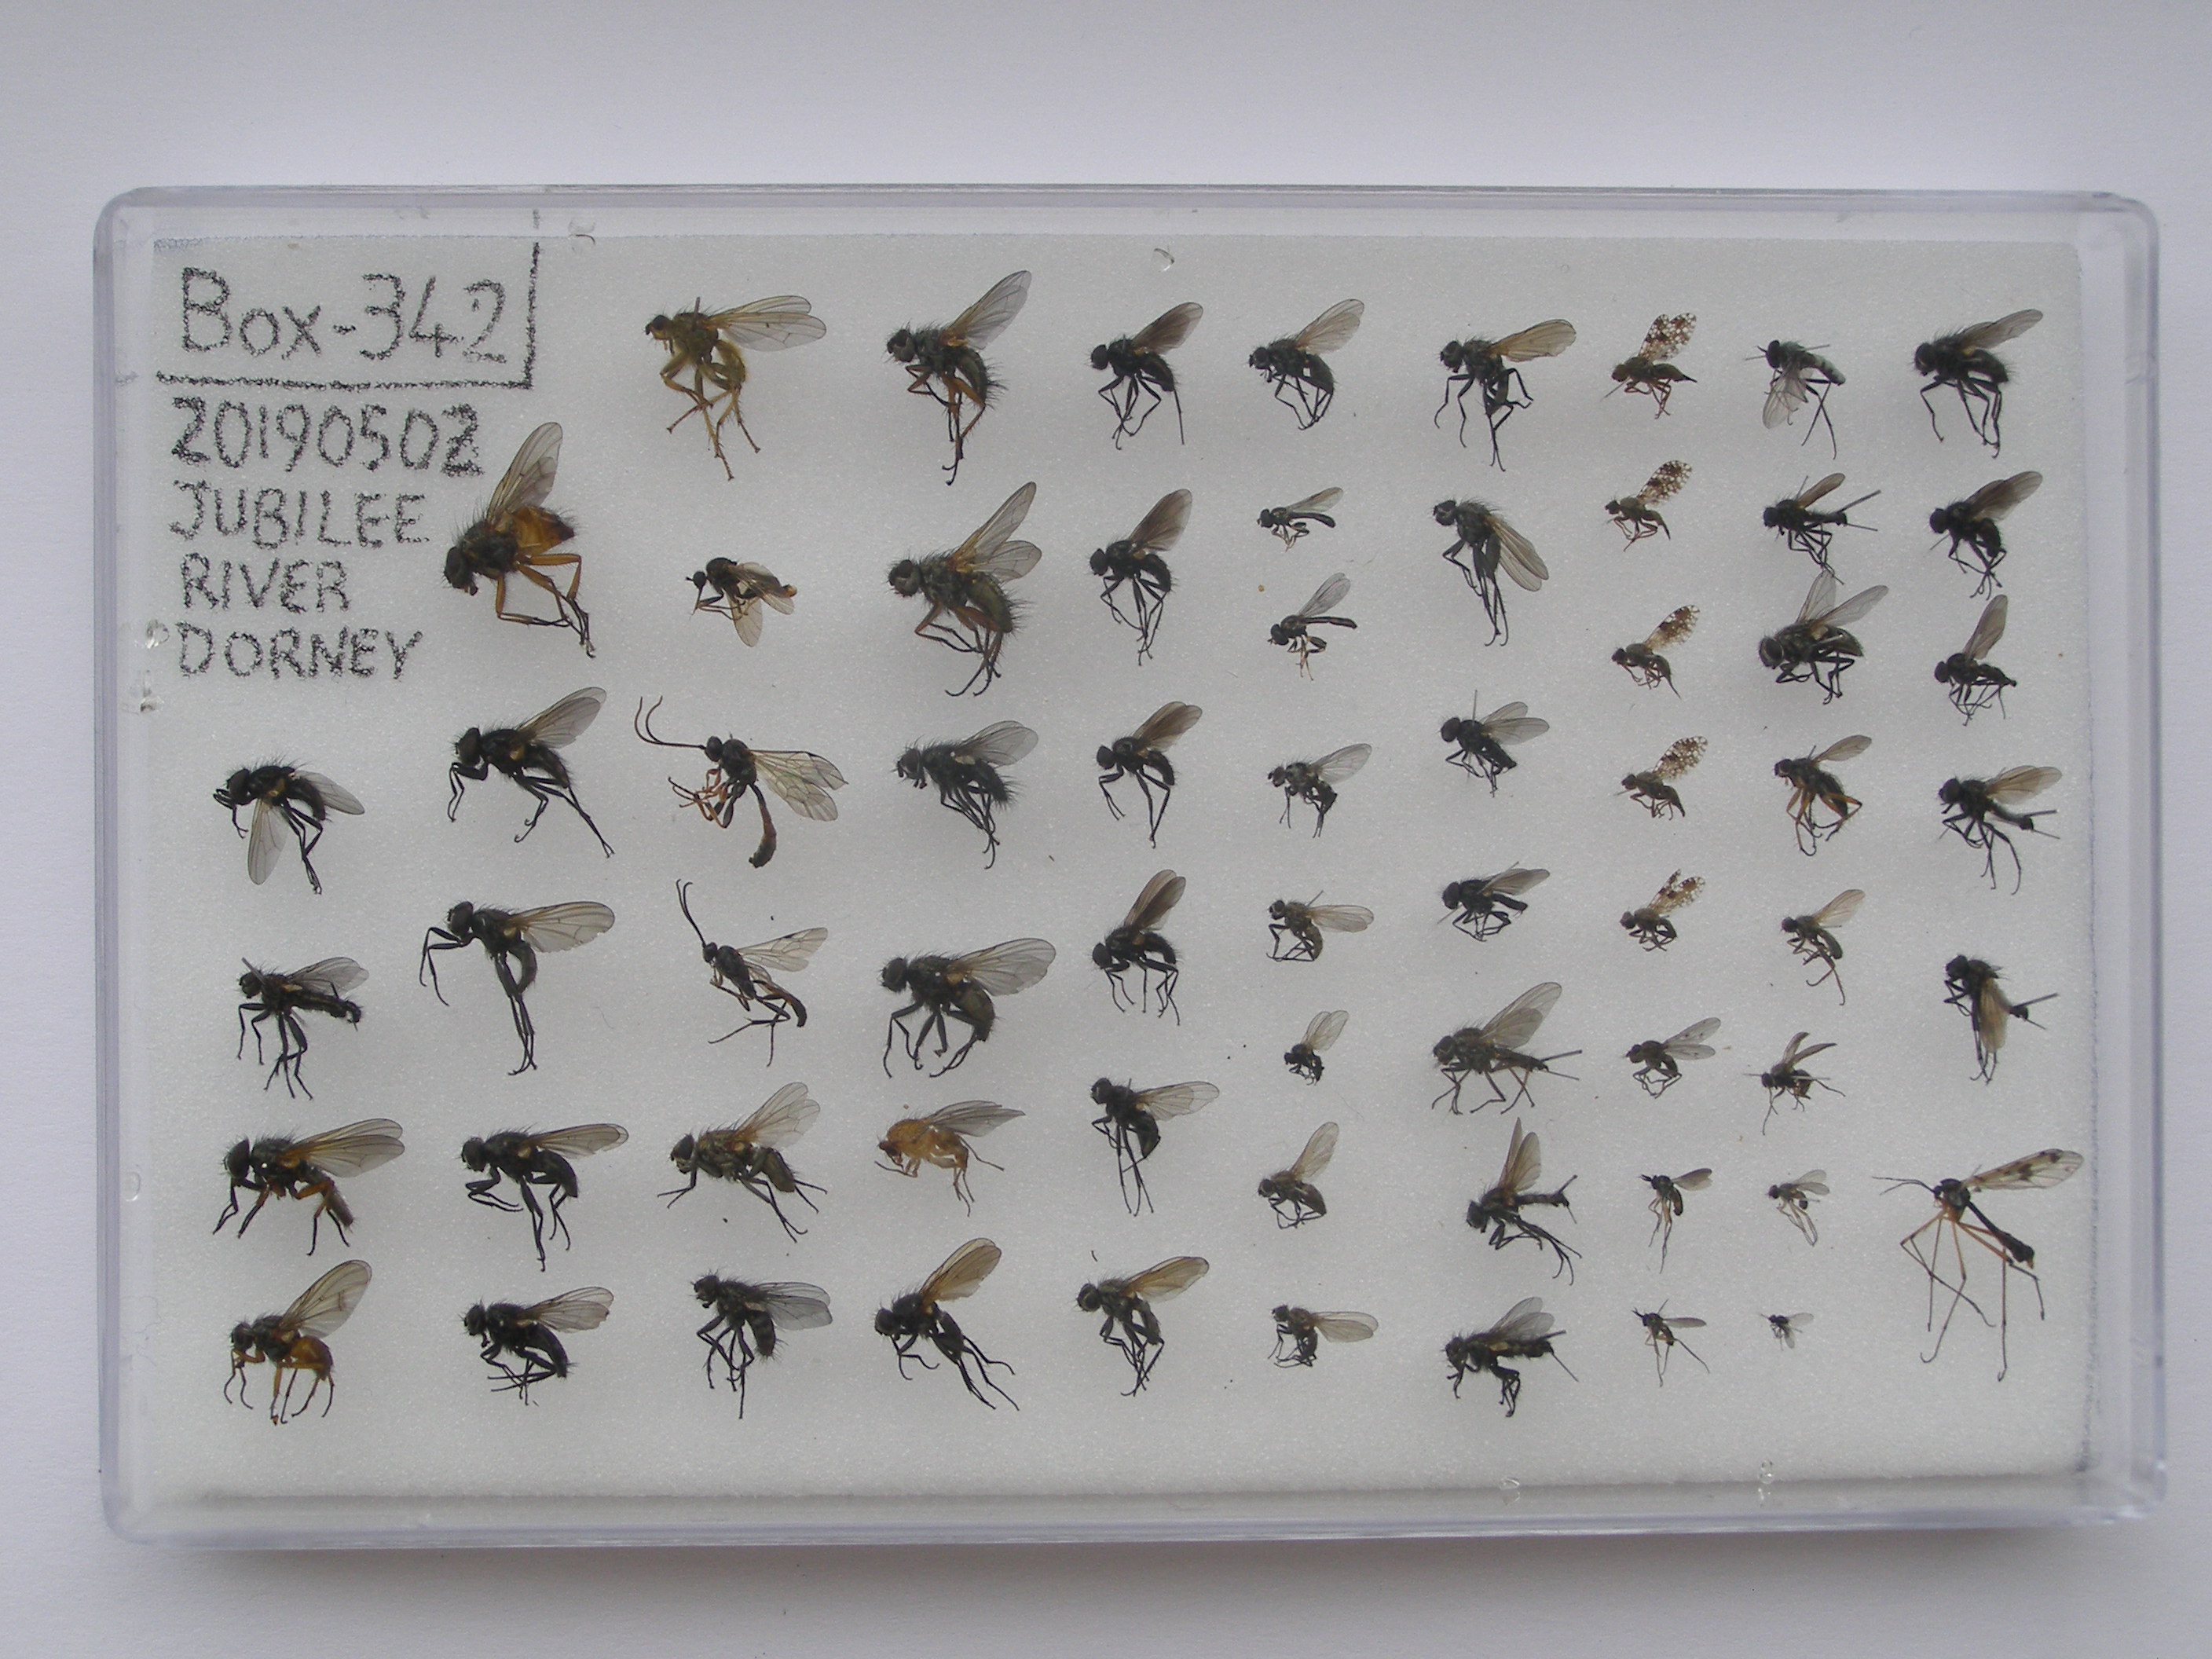 Box-342
20190502
JUBILEE
RIVER
DORNEY